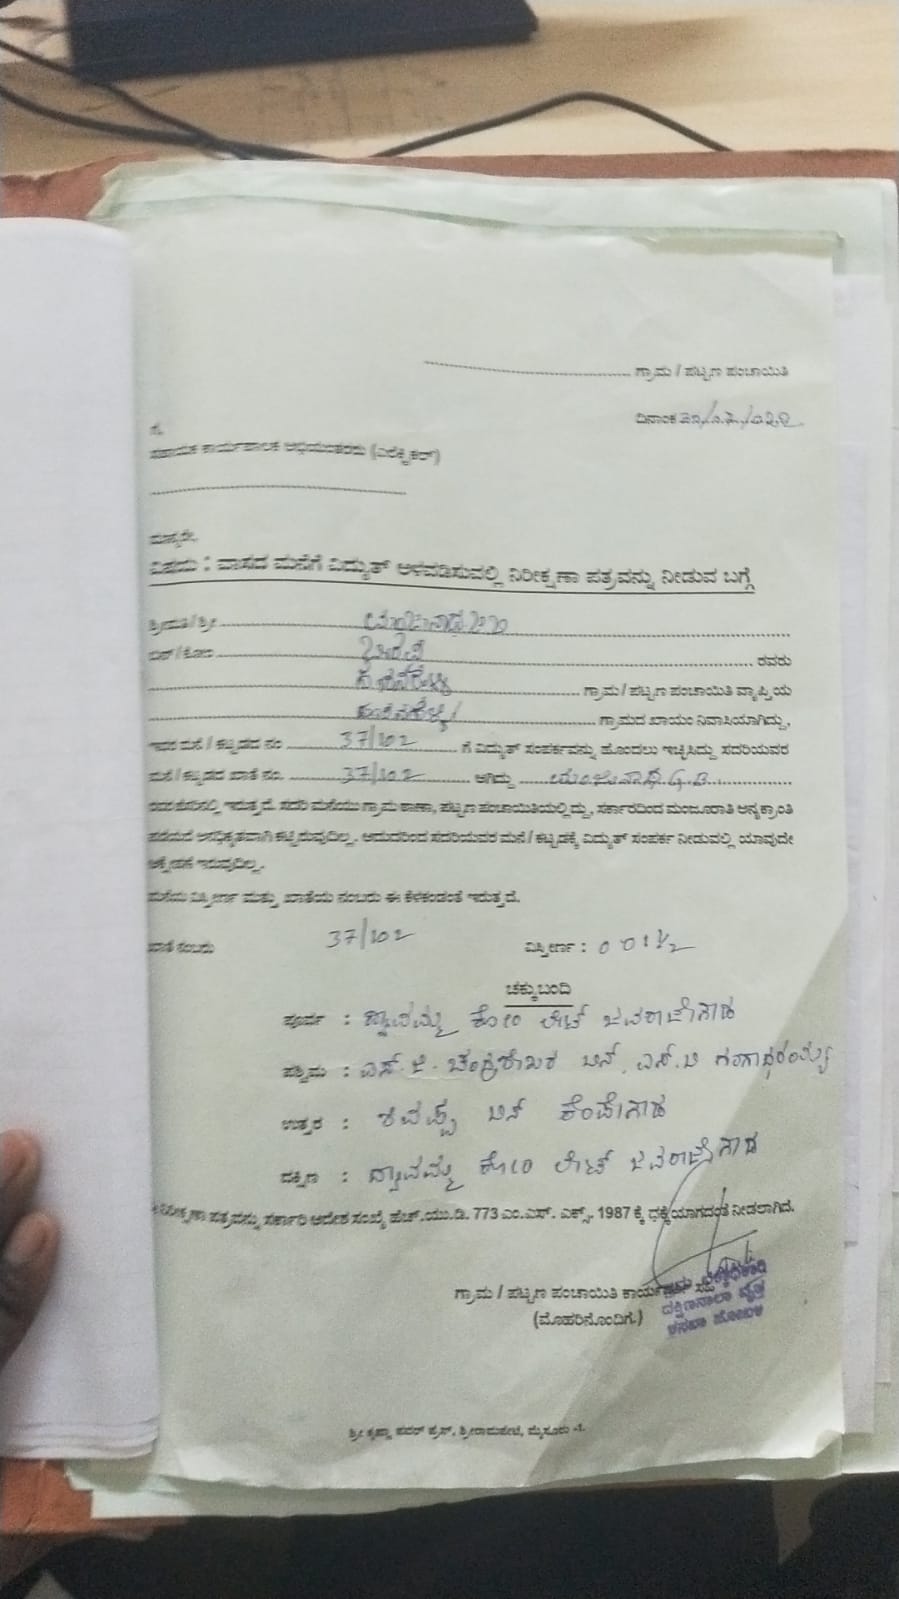 ಗ್ರಾಮ / ಪಟ್ಟಣ ಪಂಚಾಯಿತಿ
ದಿನಾಂಕ
ಗೆ,
ಸಹಾಯಕ ಕಾರ್ಯಪಾಲಕ ಅಭಿಯಂತರರು (ಎಲೆಕ್ಟ್ರಿಕಲ್)
ಮಾನ್ಯರೇ,
ವಿಷಯ : ವಾಸದ ಮನೆಗೆ ವಿದ್ಯುತ್ ಅಳವಡಿಸುವಲ್ಲಿ ನಿರೀಕ್ಷಣಾ ಪತ್ರವನ್ನು ನೀಡುವ ಬಗ್ಗೆ
ಶ್ರೀಮತಿ / ಶ್ರೀ
ಬಿನ್ / ಕೋಂ ರವರು
ಗ್ರಾಮ / ಪಟ್ಟಣ ಪಂಚಾಯಿತಿ ವ್ಯಾಪ್ತಿಯ
ಗ್ರಾಮದ ಖಾಯಂ ನಿವಾಸಿಯಾಗಿದ್ದು,
ಇವರ ಮನೆ / ಕಟ್ಟಡದ ನಂ 37/102 ಗೆ ವಿದ್ಯುತ್ ಸಂಪರ್ಕವನ್ನು ಹೊಂದಲು ಇಚ್ಛಿಸಿದ್ದು ಸದರಿಯವರ
ಮನೆ / ಕಟ್ಟಡದ ಖಾತೆ ನಂ. 37/102 ಆಗಿದ್ದು
ರವರ ಹೆಸರಿನಲ್ಲಿ ಇರುತ್ತದೆ. ಸದರಿ ಮನೆಯು ಗ್ರಾಮ ಠಾಣಾ, ಪಟ್ಟಣ ಪಂಚಾಯಿತಿಯಲ್ಲಿದ್ದು, ಸರ್ಕಾರದಿಂದ ಮಂಜೂರಾತಿ ಅನ್ಯಕ್ರಾಂತಿ
ಪಡೆಯದೆ ಅನಧಿಕೃತವಾಗಿ ಕಟ್ಟಿರುವುದಿಲ್ಲ. ಆದುದರಿಂದ ಸದರಿಯವರ ಮನೆ / ಕಟ್ಟಡಕ್ಕೆ ವಿದ್ಯುತ್ ಸಂಪರ್ಕ ನೀಡುವಲ್ಲಿ ಯಾವುದೇ
ಆಕ್ಷೇಪಣೆ ಇರುವುದಿಲ್ಲ.
ಮನೆಯ ವಿಸ್ತೀರ್ಣ ಮತ್ತು ಖಾತೆಯ ನಂಬರು ಈ ಕೆಳಕಂಡಂತೆ ಇರುತ್ತದೆ.
ಖಾತೆ ನಂಬರು 37/102 ವಿಸ್ತೀರ್ಣ :
ಚಕ್ಕುಬಂದಿ
ಪೂರ್ವ : ದ್ಯಾವಮ್ಮ ಕೋಂ ಲೇಟ್ ಜವರಾಜೇಗೌಡ
ಪಶ್ಚಿಮ : ಎಸ್.ಜಿ. ಚಂದ್ರಶೇಖರ ಬಿನ್ ಎಸ್.ಬಿ ಗಂಗಾಧರಯ್ಯ
ಉತ್ತರ : ಶಿವಪ್ಪ ಬಿನ್ ಕೆಂಪೇಗೌಡ
ದಕ್ಷಿಣ : ದ್ಯಾವಮ್ಮ ಕೋಂ ಲೇಟ್ ಜವರಾಜೇಗೌಡ
ಈ ನಿರೀಕ್ಷಣಾ ಪತ್ರವನ್ನು ಸರ್ಕಾರಿ ಆದೇಶ ಸಂಖ್ಯೆ ಹೆಚ್.ಯು.ಡಿ. 773 ಎಂ.ಎಸ್. ಎಕ್ಸ್. 1987 ಕ್ಕೆ ಧಕ್ಕೆಯಾಗದಂತೆ ನೀಡಲಾಗಿದೆ.
ಗ್ರಾಮ / ಪಟ್ಟಣ ಪಂಚಾಯಿತಿ
(ಮೊಹರಿನೊಂದಿಗೆ)
ಕಸಬಾ ಹೋಬಳಿ
ಶ್ರೀ ಕೃಷ್ಣಾ ಪವರ್ ಪ್ರೆಸ್, ಶ್ರೀರಾಮಪೇಟೆ, ಮೈಸೂರು -1.